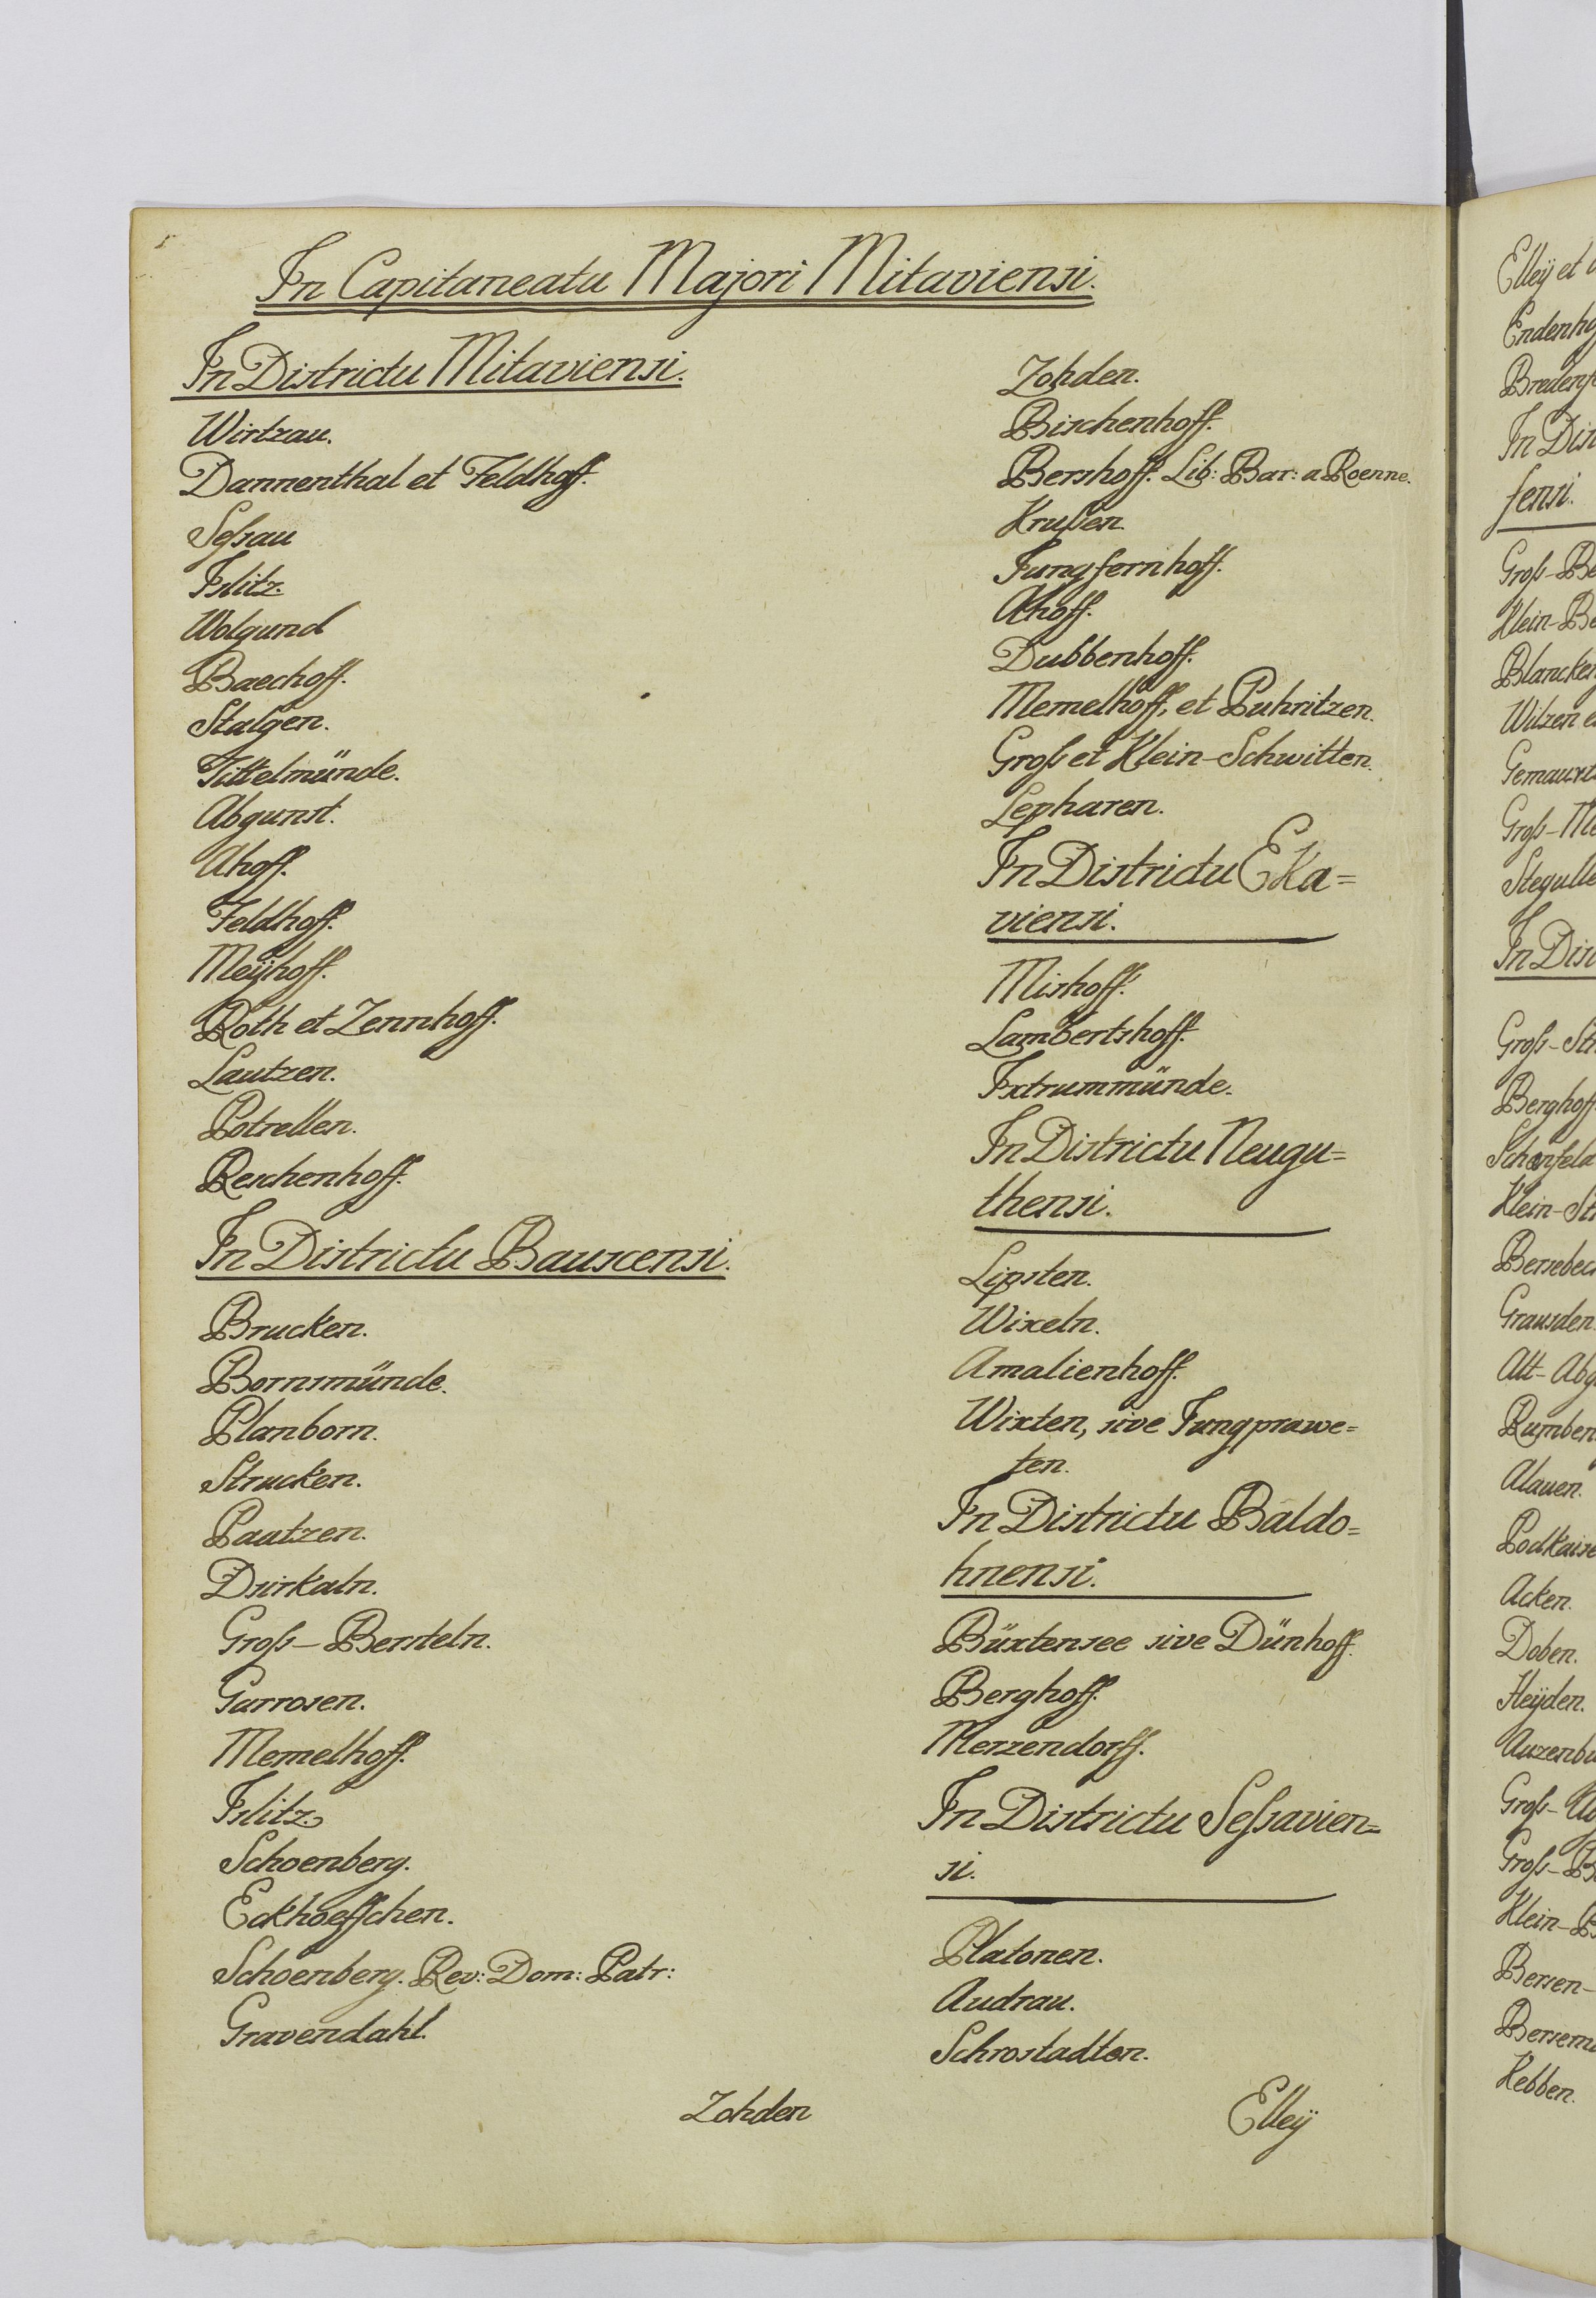 In Capitaneatu Majori Mitaviensi.
In Districtu Mitaviensi.
Wirtzau.
Dannenthal et Feldhoff.
Seſsau
Islitz.
Wolgund
Baechoff.
Stalgen.
Tittelmünde.
Abgunst.
Ahoff.
Feldhoff.
Meÿhoff.
Roth et Zennhoff.
Lautzen.
Potrellen.
Reschenhoff.
In Districtu Bauscensi.
Brucken.
Bornsmünde.
Planborn.
Strucken.
Pautzen.
Dsirkaln.
Groſs-Bersteln.
Garrosen.
Memelhoff.
Islitz.
Schoenberg.
Eckhoeffchen.
Schoenberg. Rev: Dom: Patr:
Gravendahl.
Zohden
Zohden.
Birchenhoff.
Bershoff. Lib: Bar: a Roenne.
Kruſsen.
Jungfernhoff.
Ahoff.
Dubbenhoff.
Memelhoff, et Puhritzen.
Groſs et Klein-Schwitten.
Lepharen.
In Districtu Eka=
viensi.
Mishoff.
Lambertshoff.
Ixtrummünde.
In Districtu Neugu=
thensi.
Lipsten.
Wixeln.
Amalienhoff.
Wixten, sive Jungprawe=
ten.
In Districtu Baldo=
hnensi.
Büxtensee sive Dünhoff.
Berghoff.
Merzendorff.
In Districtu Seſsavien=
si.
Platonen.
Audrau.
Schrostadten.
Elleÿ
Elleÿ et
In Dis
fensi.
Groſs-Be
Klein-Be
Wilzen e
Groſs-
In Dis
Groſs-St
Berghoff
Klein-St
Grausden.
Alt-Abg
Rumben
Alauen.
Acken.
Doben.
Heÿden.
Groſs-
Groſs-B
Klein-B
Bersen-
Kebben.